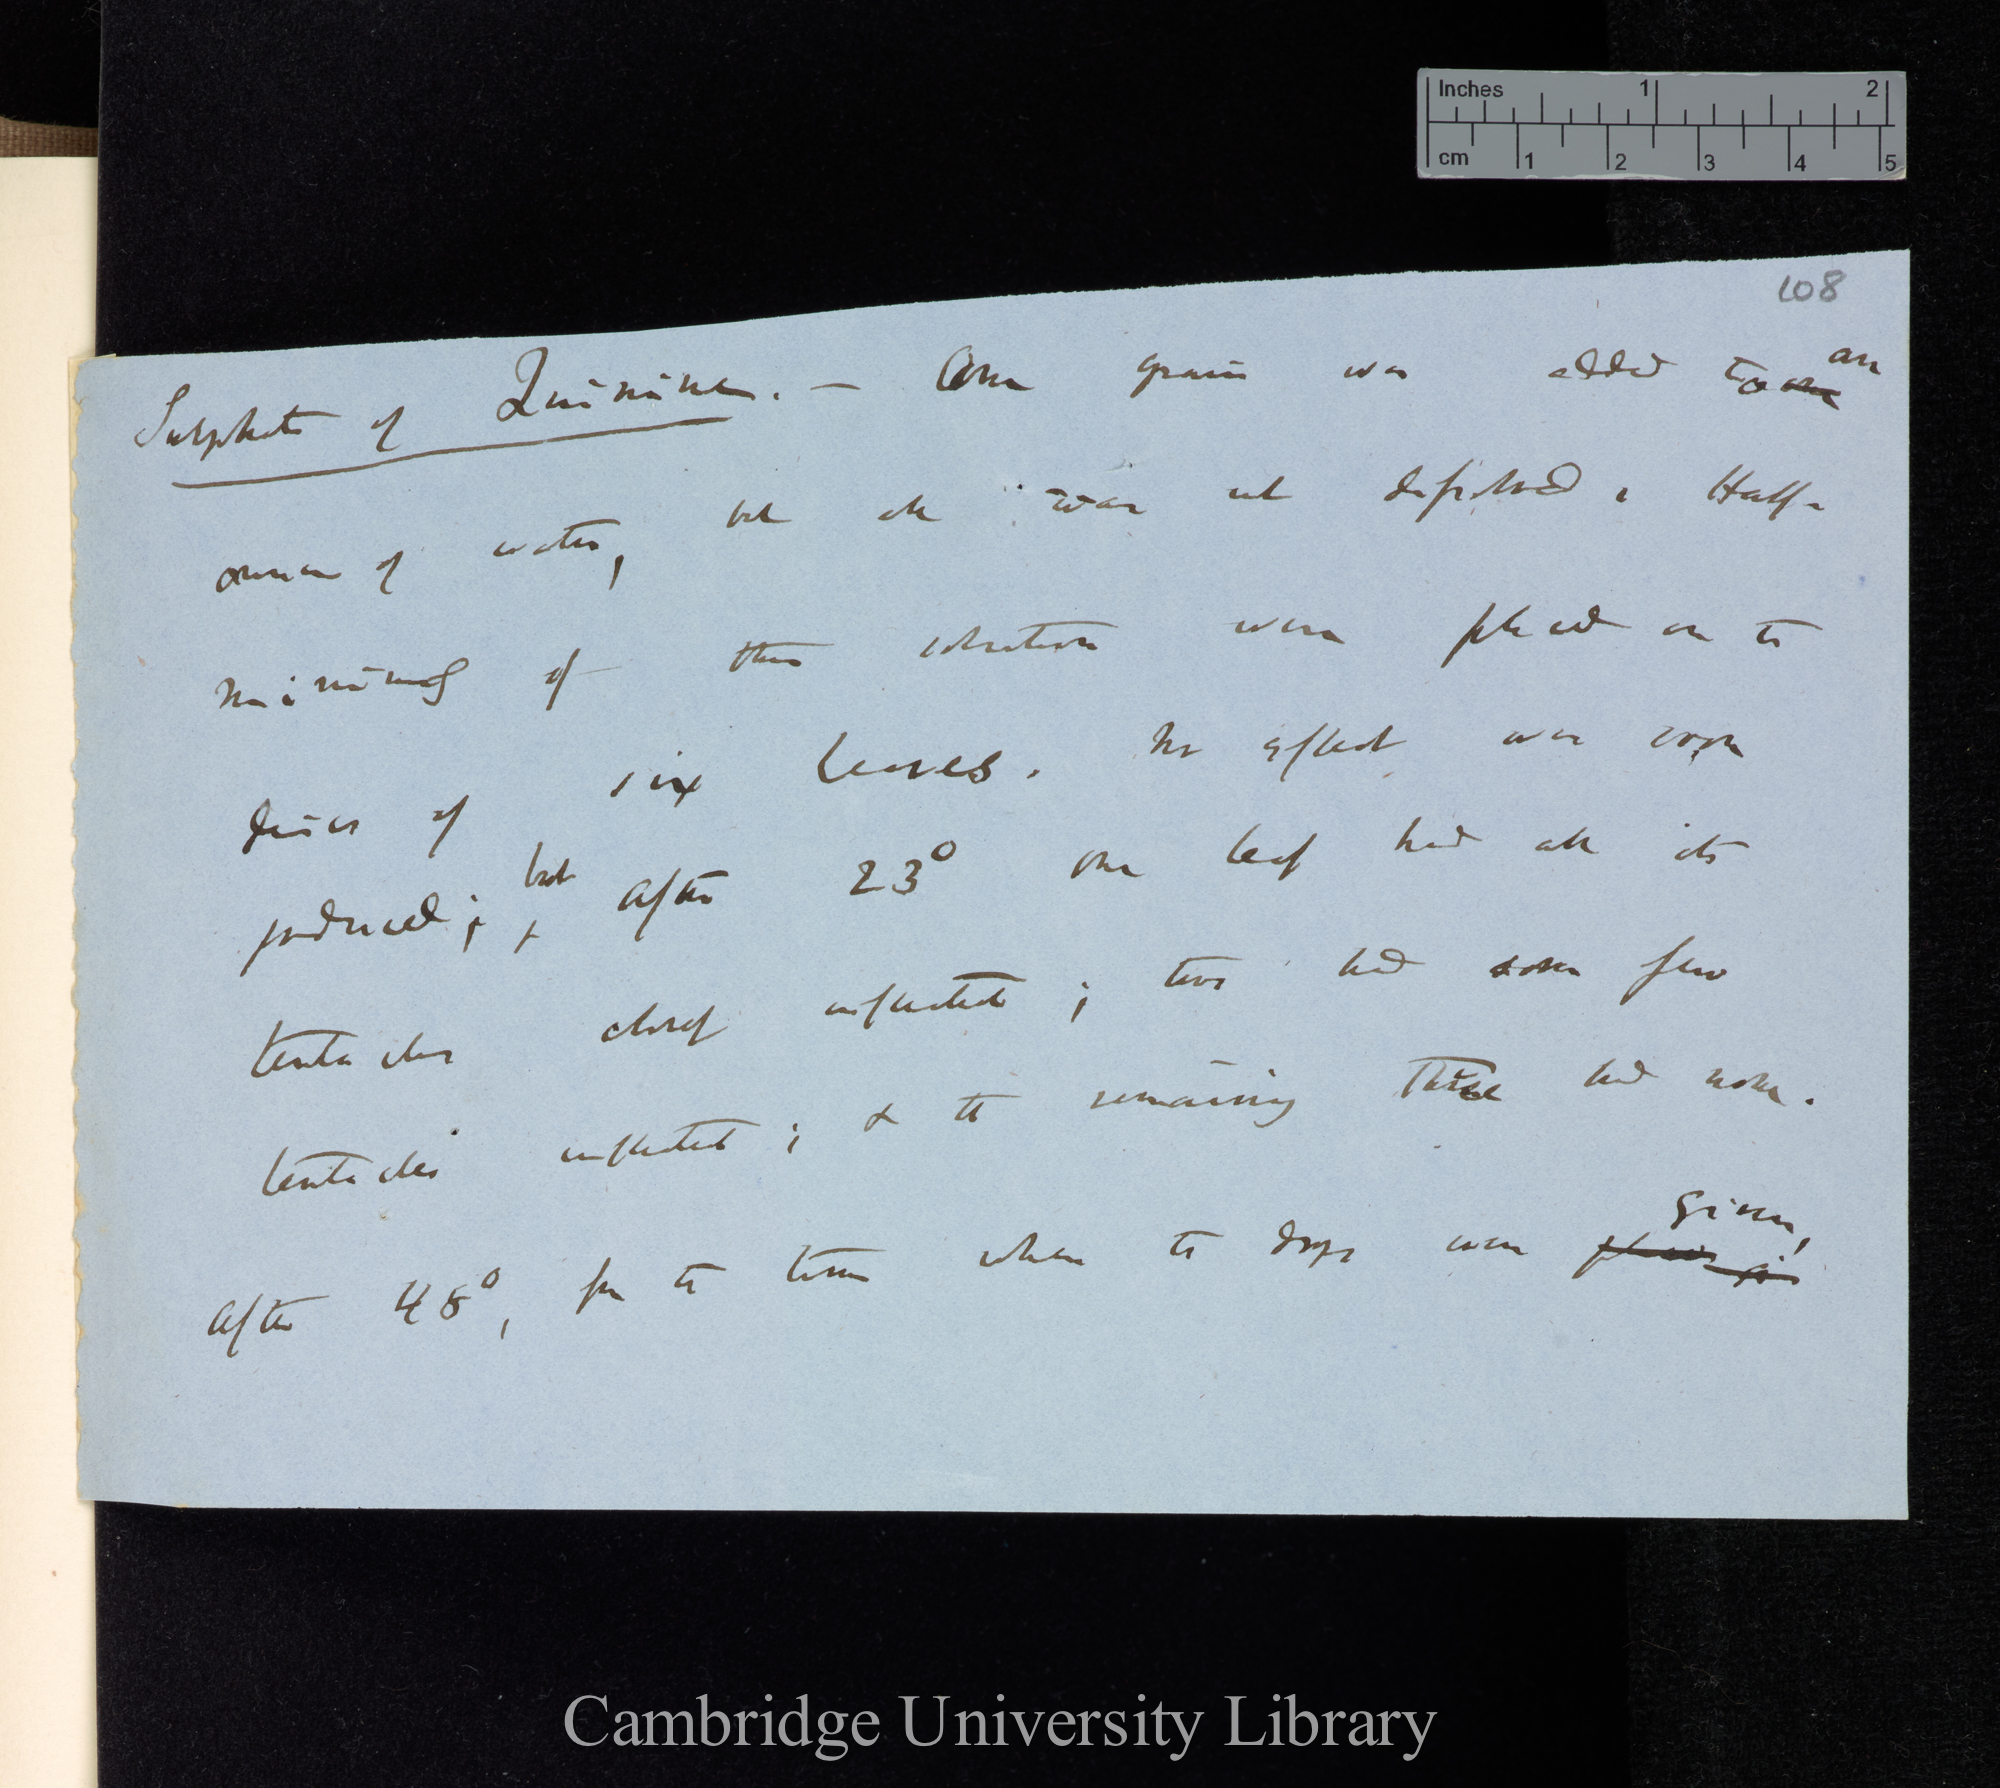 Inches 1 2
cm 1 2 3 4 5
108
Sulphate of Quinine. — One grain was added to one an
ounce of water, but all was not dissolved. Half-
minims of this solution were placed on the
discs of six leaves. No effect was
produced; but after 23° one leaf had all its
tentacles closely inflected; two had some few
tentacles inflected; & the remaining three had none.
After 48°, from the time when the drops were given,
Cambridge University Library